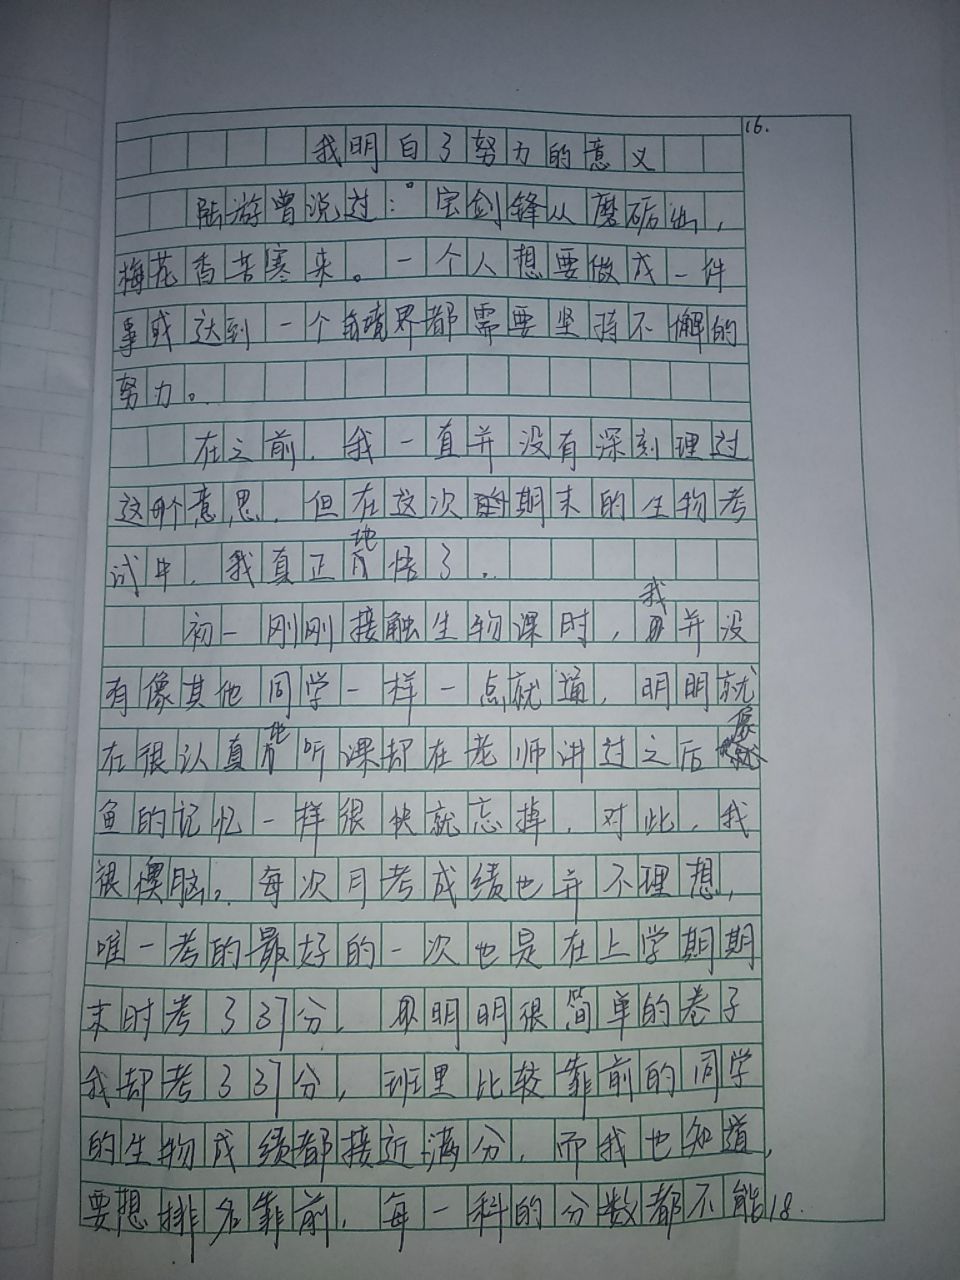 16.
我明白了努力的意义
陆游曾说过:“宝剑锋从磨砺出,
梅花香苦寒来。一个人想要做成一件
事或达到一个境界都需要坚持不懈的
努力。
在之前,我一直并没有深刻理过
这个意思,但在这次期末的生物考
试中,我真正地悟了。
初一刚刚接触生物课时,我并没
有像其他同学一样一点就通,明明就
在很认真地听课却在老师讲过之后像
鱼的记忆一样很快就忘掉,对此,我
很懊脑。每次月考成绩也并不理想,
唯一考的最好的一次也是在上学期期
末时考了37分,明明很简单的卷子
我却考了37分,班里比较靠前的同学
的生物成绩都接近满分,而我也知道,
要想排名靠前,每一科的分数都不能
18.